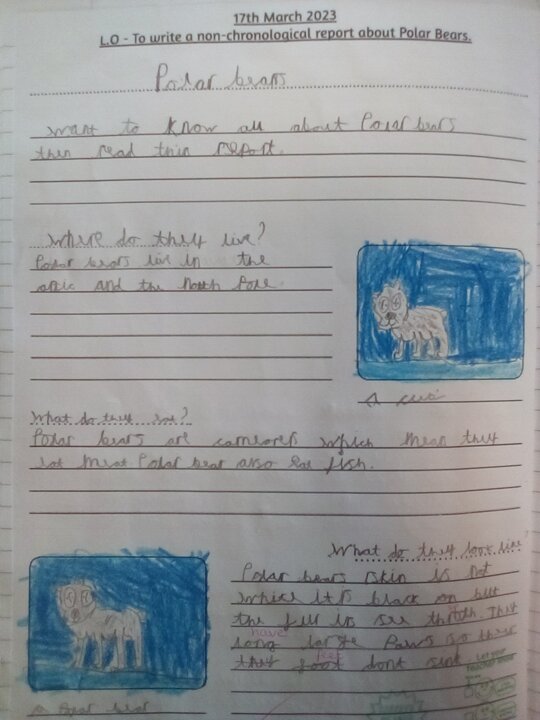 17th March 2023
L.O - To write a non-chronological report about Polar Bears.
Polar bears
want to know all about Polar bears
then read this report.
Where do they live?
Polar bears live in the
artic and the North Pole.
A
What do they eat?
Polar bears are which mean they
eat meat. Polar bear also eat fish.
What do they look like
Polar bears skin is not
white it is black but
the fur is see . They
have
long large Paws so there
feet
they foot dont sink
a bear